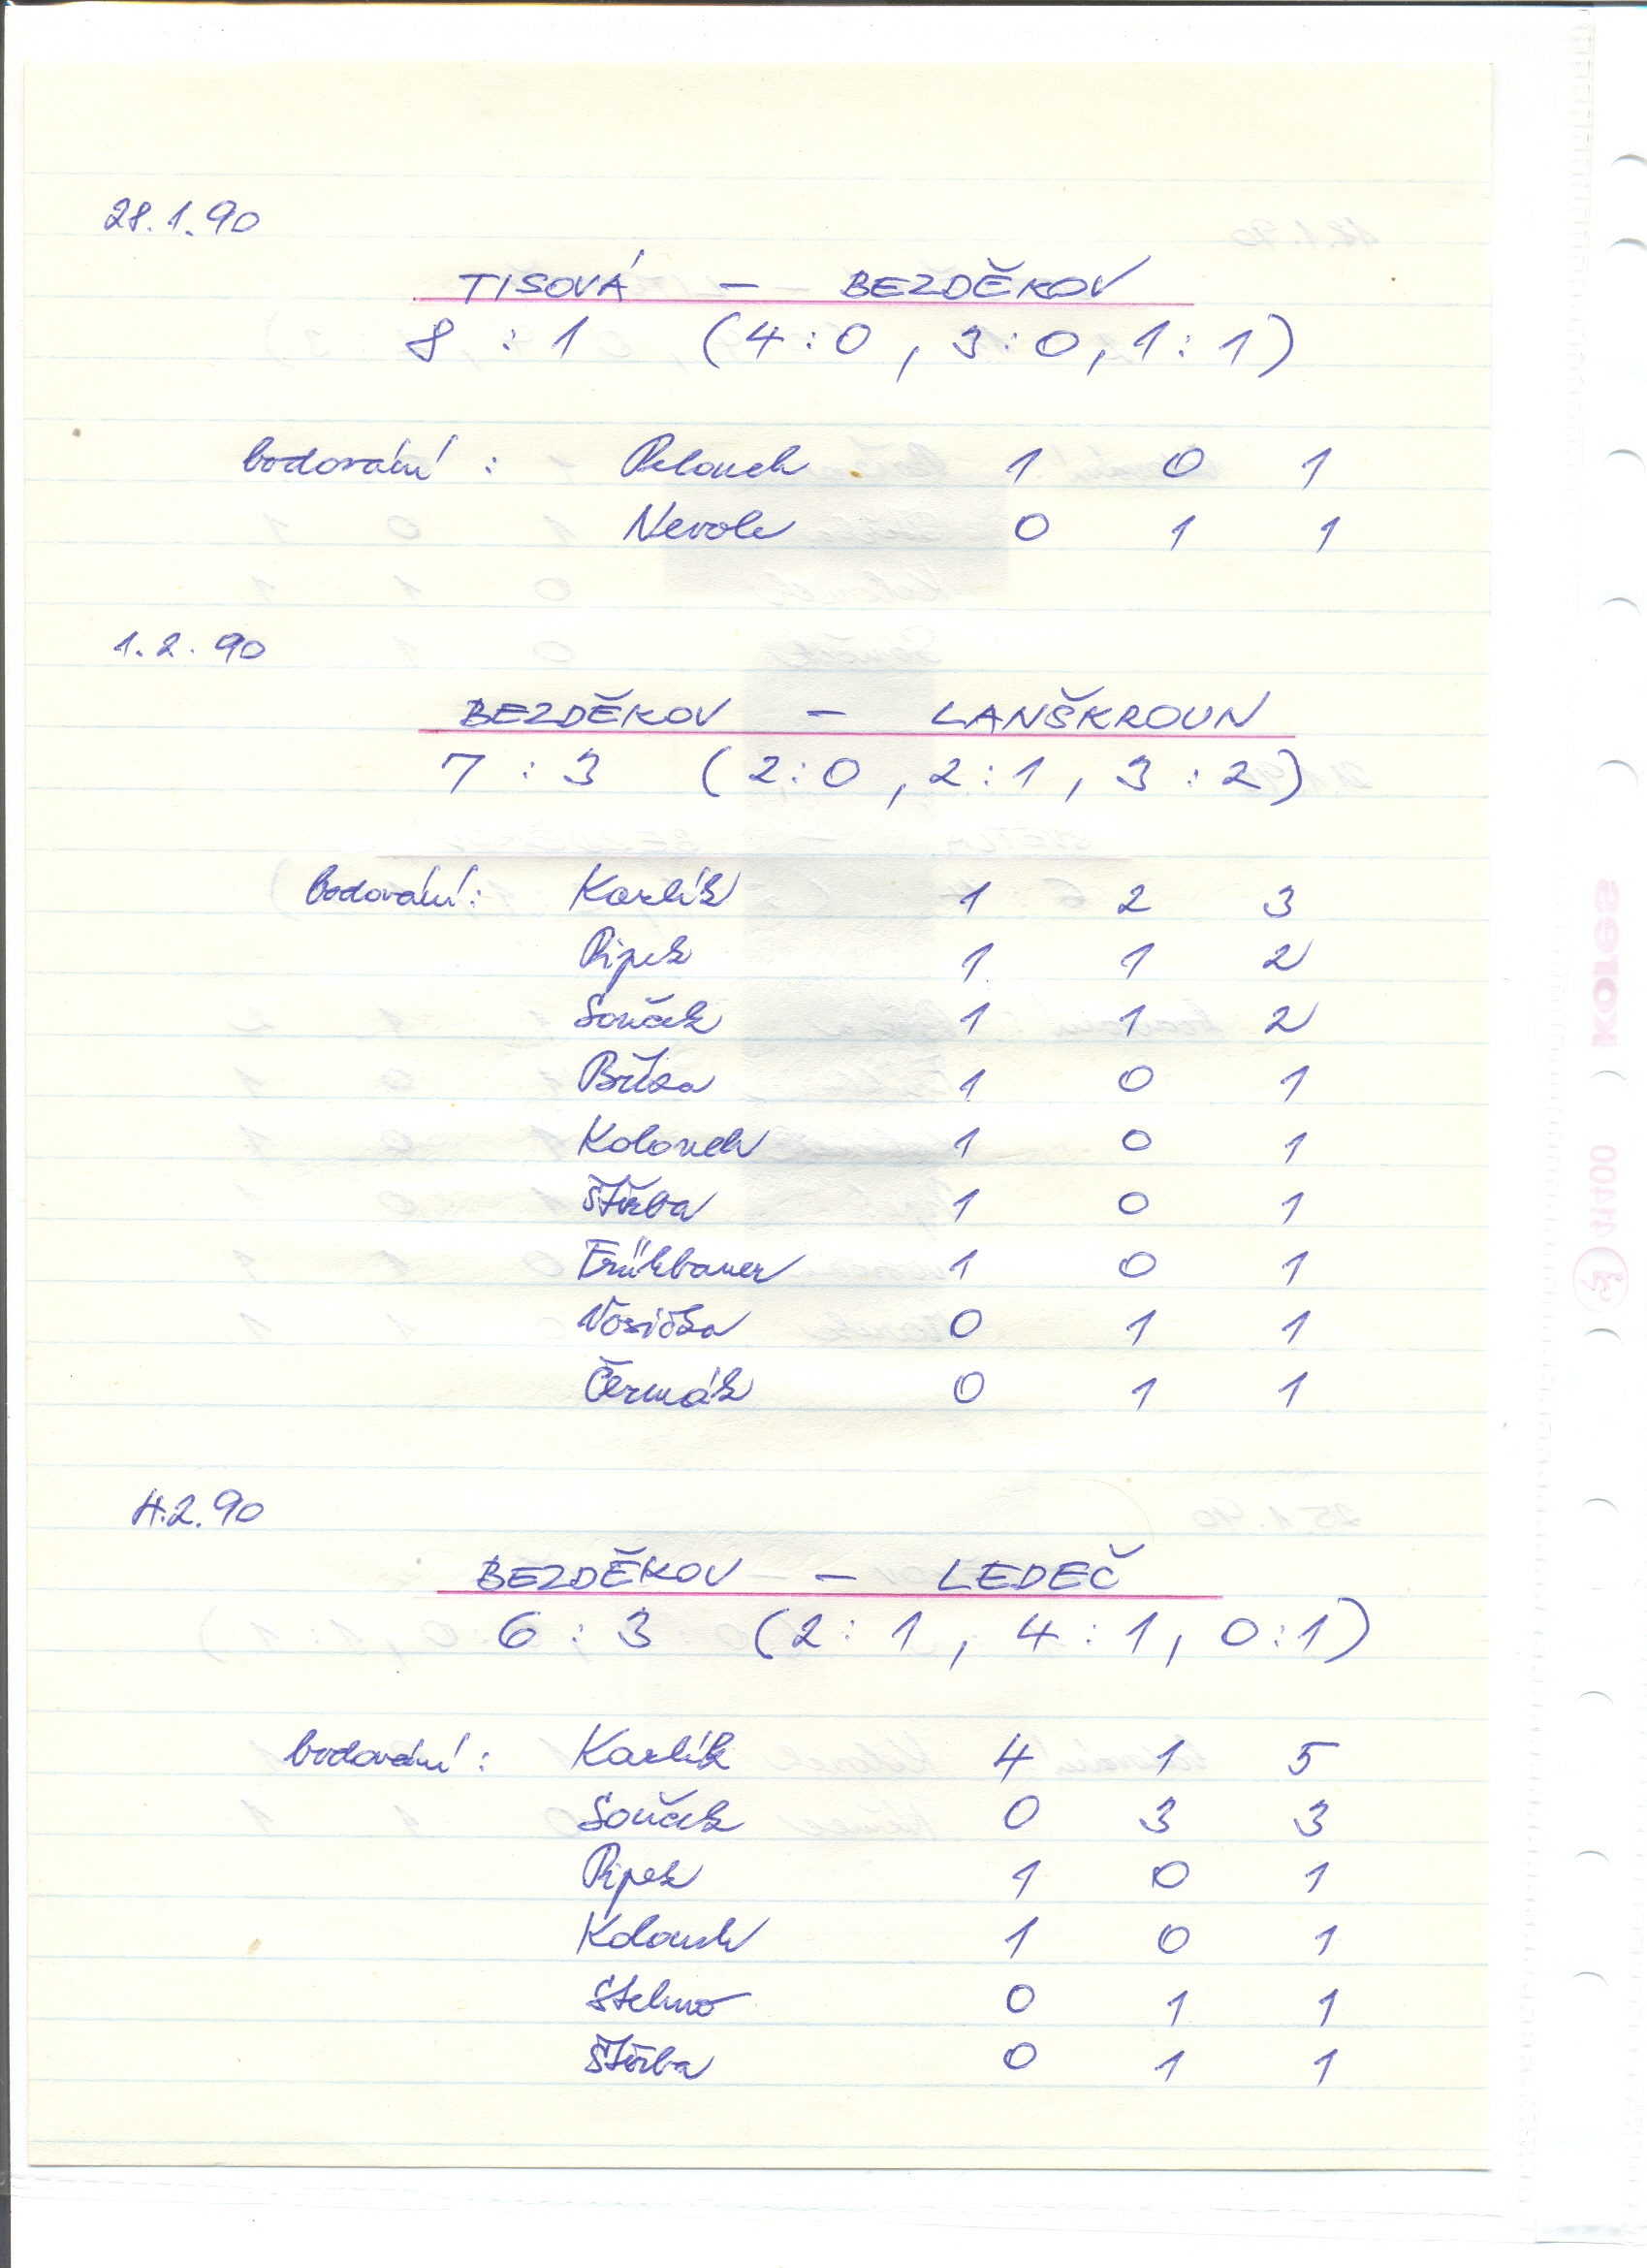 28.1.90
TISOVÁ — BEZDĚKOV
8 : 1 (4:0, 3:0, 1:1)
bodování : 1 0 1
Nevole 0 1 1
1.2.90
BEZDĚKOV — LANŠKROUN
7 : 3 (2:0, 2:1, 3:2)
bodování: Karlík 1 2 3
Pipek 1 1 2
Souček 1 1 2
Bříza 1 0 1
Kolouch 1 0 1
Štěrba 1 0 1
Frühbauer 1 0 1
Vosička 0 1 1
Čermák 0 1 1
4.2.90
BEZDĚKOV — LEDEČ
6 : 3 (2:1, 4:1, 0:1)
bodování : Karlík 4 1 5
Souček 0 3 3
Pipek 1 0 1
Kolouch 1 0 1
Stehno 0 1 1
Štěrba 0 1 1
kores